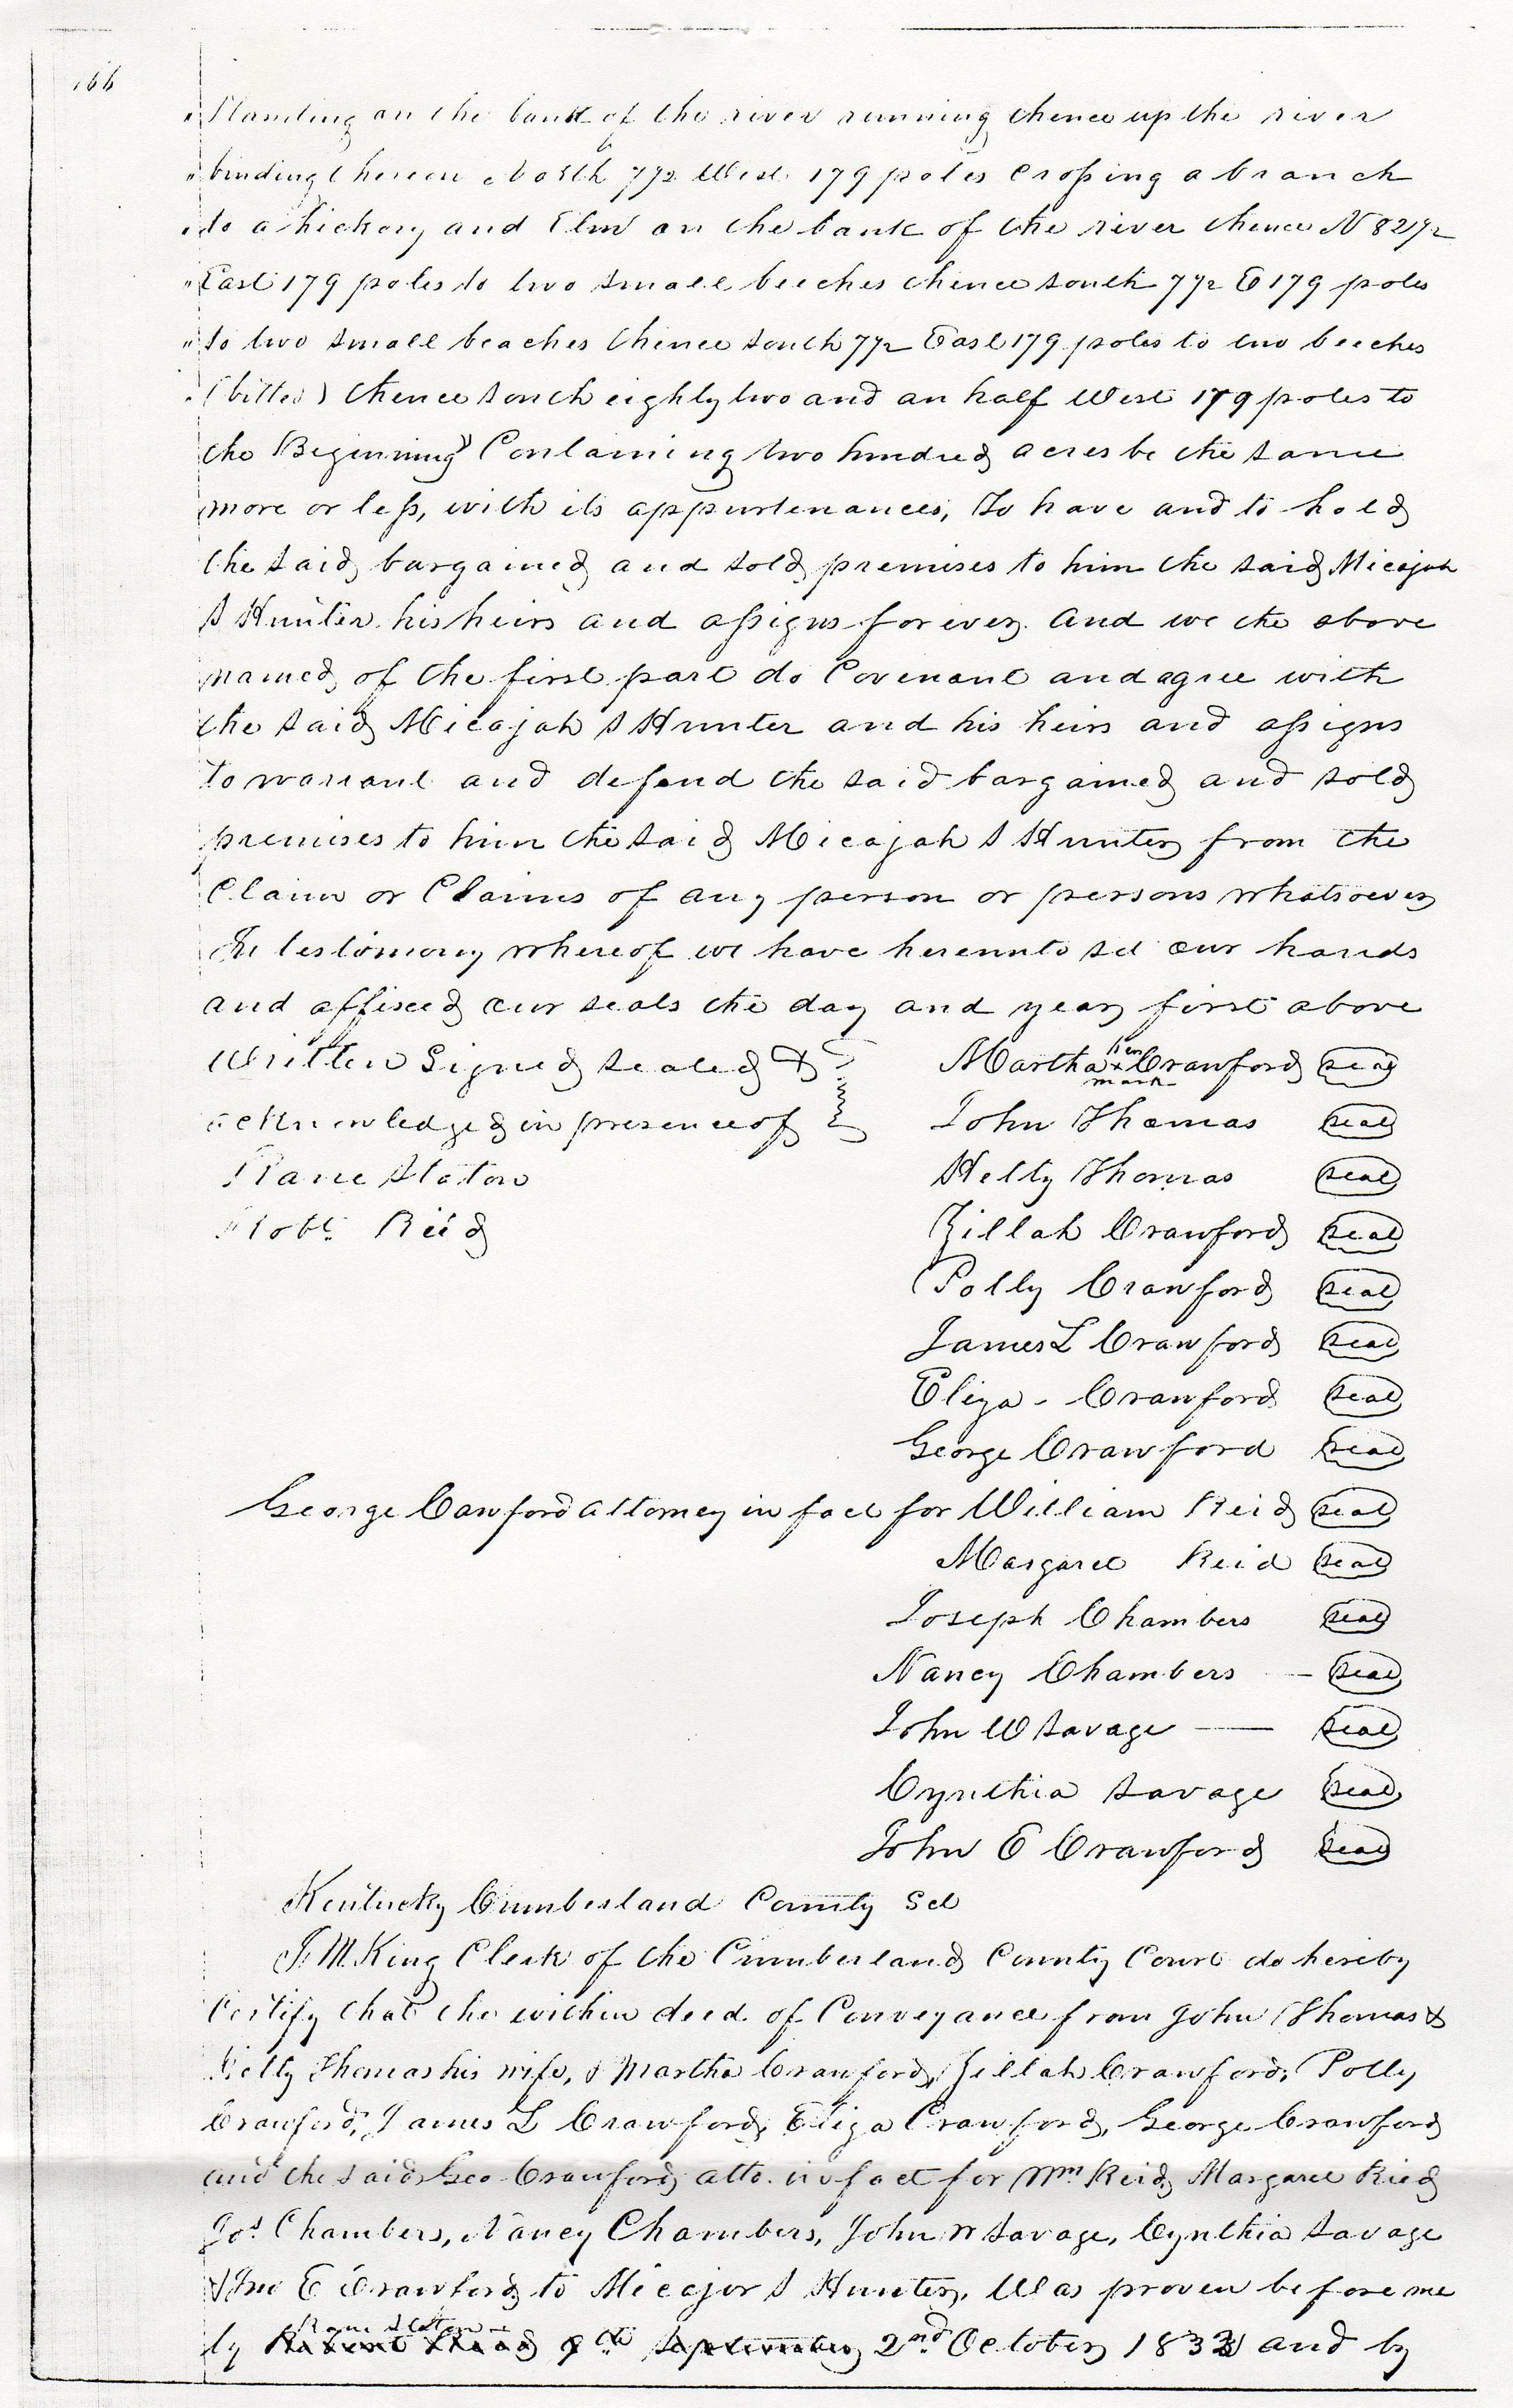 166
Standing on the bank of the river running thence up the river
binding thereon North 7 1/2 West 179 poles Crossing a branch
to a hickory and Elm on the bank of the river thence N 82 1/2
East 179 poles to two small beeches thence south 7 1/2 E 179 poles
to two small beaches thence south 7 1/2 East 179 poles to two beeches
thence south eighty two and an half West 179 poles to
the Beginning Containing two hundred acres be the same
more or less, with its appurtenances, To have and to hold
the said bargained and sold premises to him the said Micajah
S Hunter his heirs and assigns forever. And we the above
named of the first part do Covenant and agree with
the said Micajah S Hunter and his heirs and assigns
To warrant and defend the said bargained and sold
premises to him the said Micajah S Hunter from the
Claim or Claims of any person or persons whatsoever
In testimony whereof we have hereunto set our hands
and affixed our seals the day and year first above
Written Signed sealed & Martha her x mark Crawford seal
acknowledged in presence of John Thomas seal
Rane Staton Hetty Thomas seal
Robt. Reid Zillah Crawford seal
Polly Crawford seal
James L Crawford seal
Eliza - Crawford seal
George Crawford seal
George Cawford attorney in fact for William Reid seal
Margaret Reid seal
Joseph Chambers seal
Nancy Chambers — seal
John W Savage — seal
Cynthia Savage seal
John E Crawford seal
Kentucky Cumberland County Sct
I M King Clerk of the Cumberland County Court do hereby
Certify that the within deed of Conveyance from John Thomas &
Hetty Thomas his wife, & Martha Crawford, Zillah Crawford, Polly
Crawford, James L Crawford, Eliza Crawford, George Crawford
and the said Geo Crawford atto. in fact for Wm Reid, Margaret Ried
Jos Chambers, Nancy Chambers, John W Savage, Cynthia Savage
& Jno E Crawford to Micajor S Hunter, Was proven before me
Rane Staton
by 9th September 2nd October 1833 and by